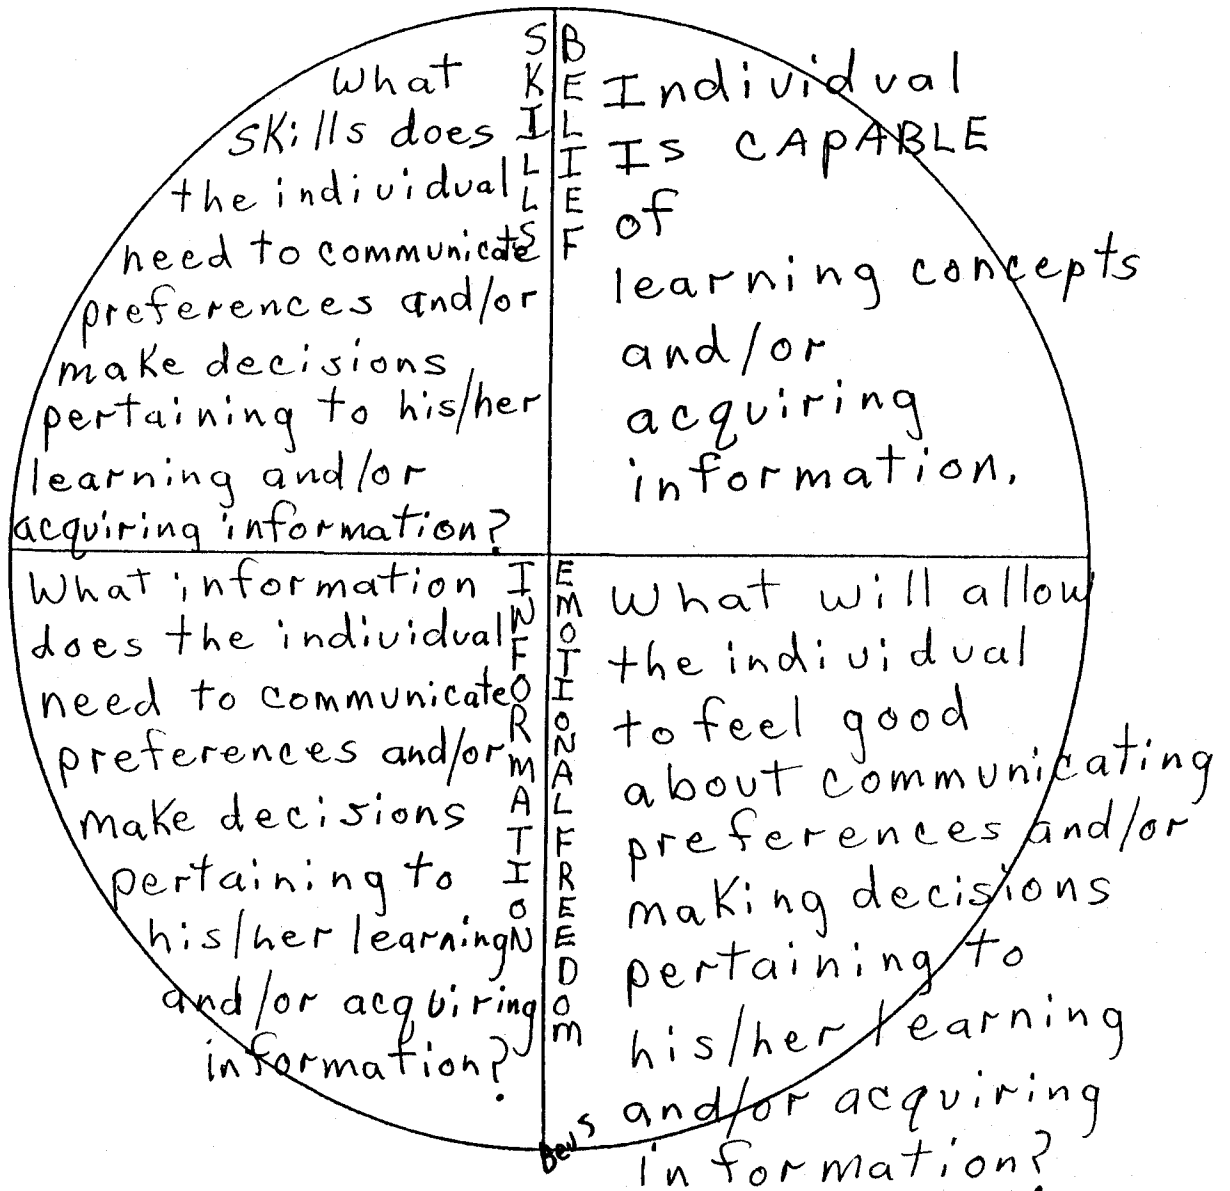 SKILLS
What
Skills does
the individual
need to communicate
preferences and/or
make decisions
pertaining to his/her
learning and/or
acquiring information?
BELIEF
Individual
Is CAPABLE
of
learning concepts
and/or
acquiring
information.
INFORMATION
What information
does the individual
need to communicate
preferences and/or
make decisions
pertaining to
his/her learning
and/or acquiring
information?
EMOTIONAL FREEDOM
What will allow
the individual
to feel good
about communicating
preferences and/or
making decisions
pertaining to
his/her learning
and/or acquiring
information?